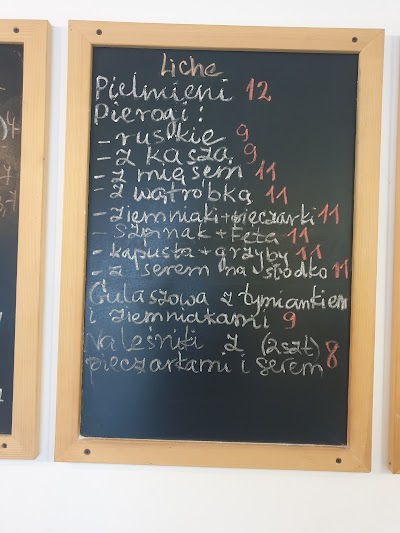 Liche
Pielmieni 12
Pierogi:
- ruskie 9
- z kaszą 9
- z mięsem 11
- z wątróbką 11
- ziemniaki+pieczarki 11
- Szpinak + Feta 11
- kapusta + grzyby 11
- z serem na słodko 11
Gulaszowa z tymiankiem
i ziemniakami 9
Naleśniki z (2szt) 8
pieczarkami i serem